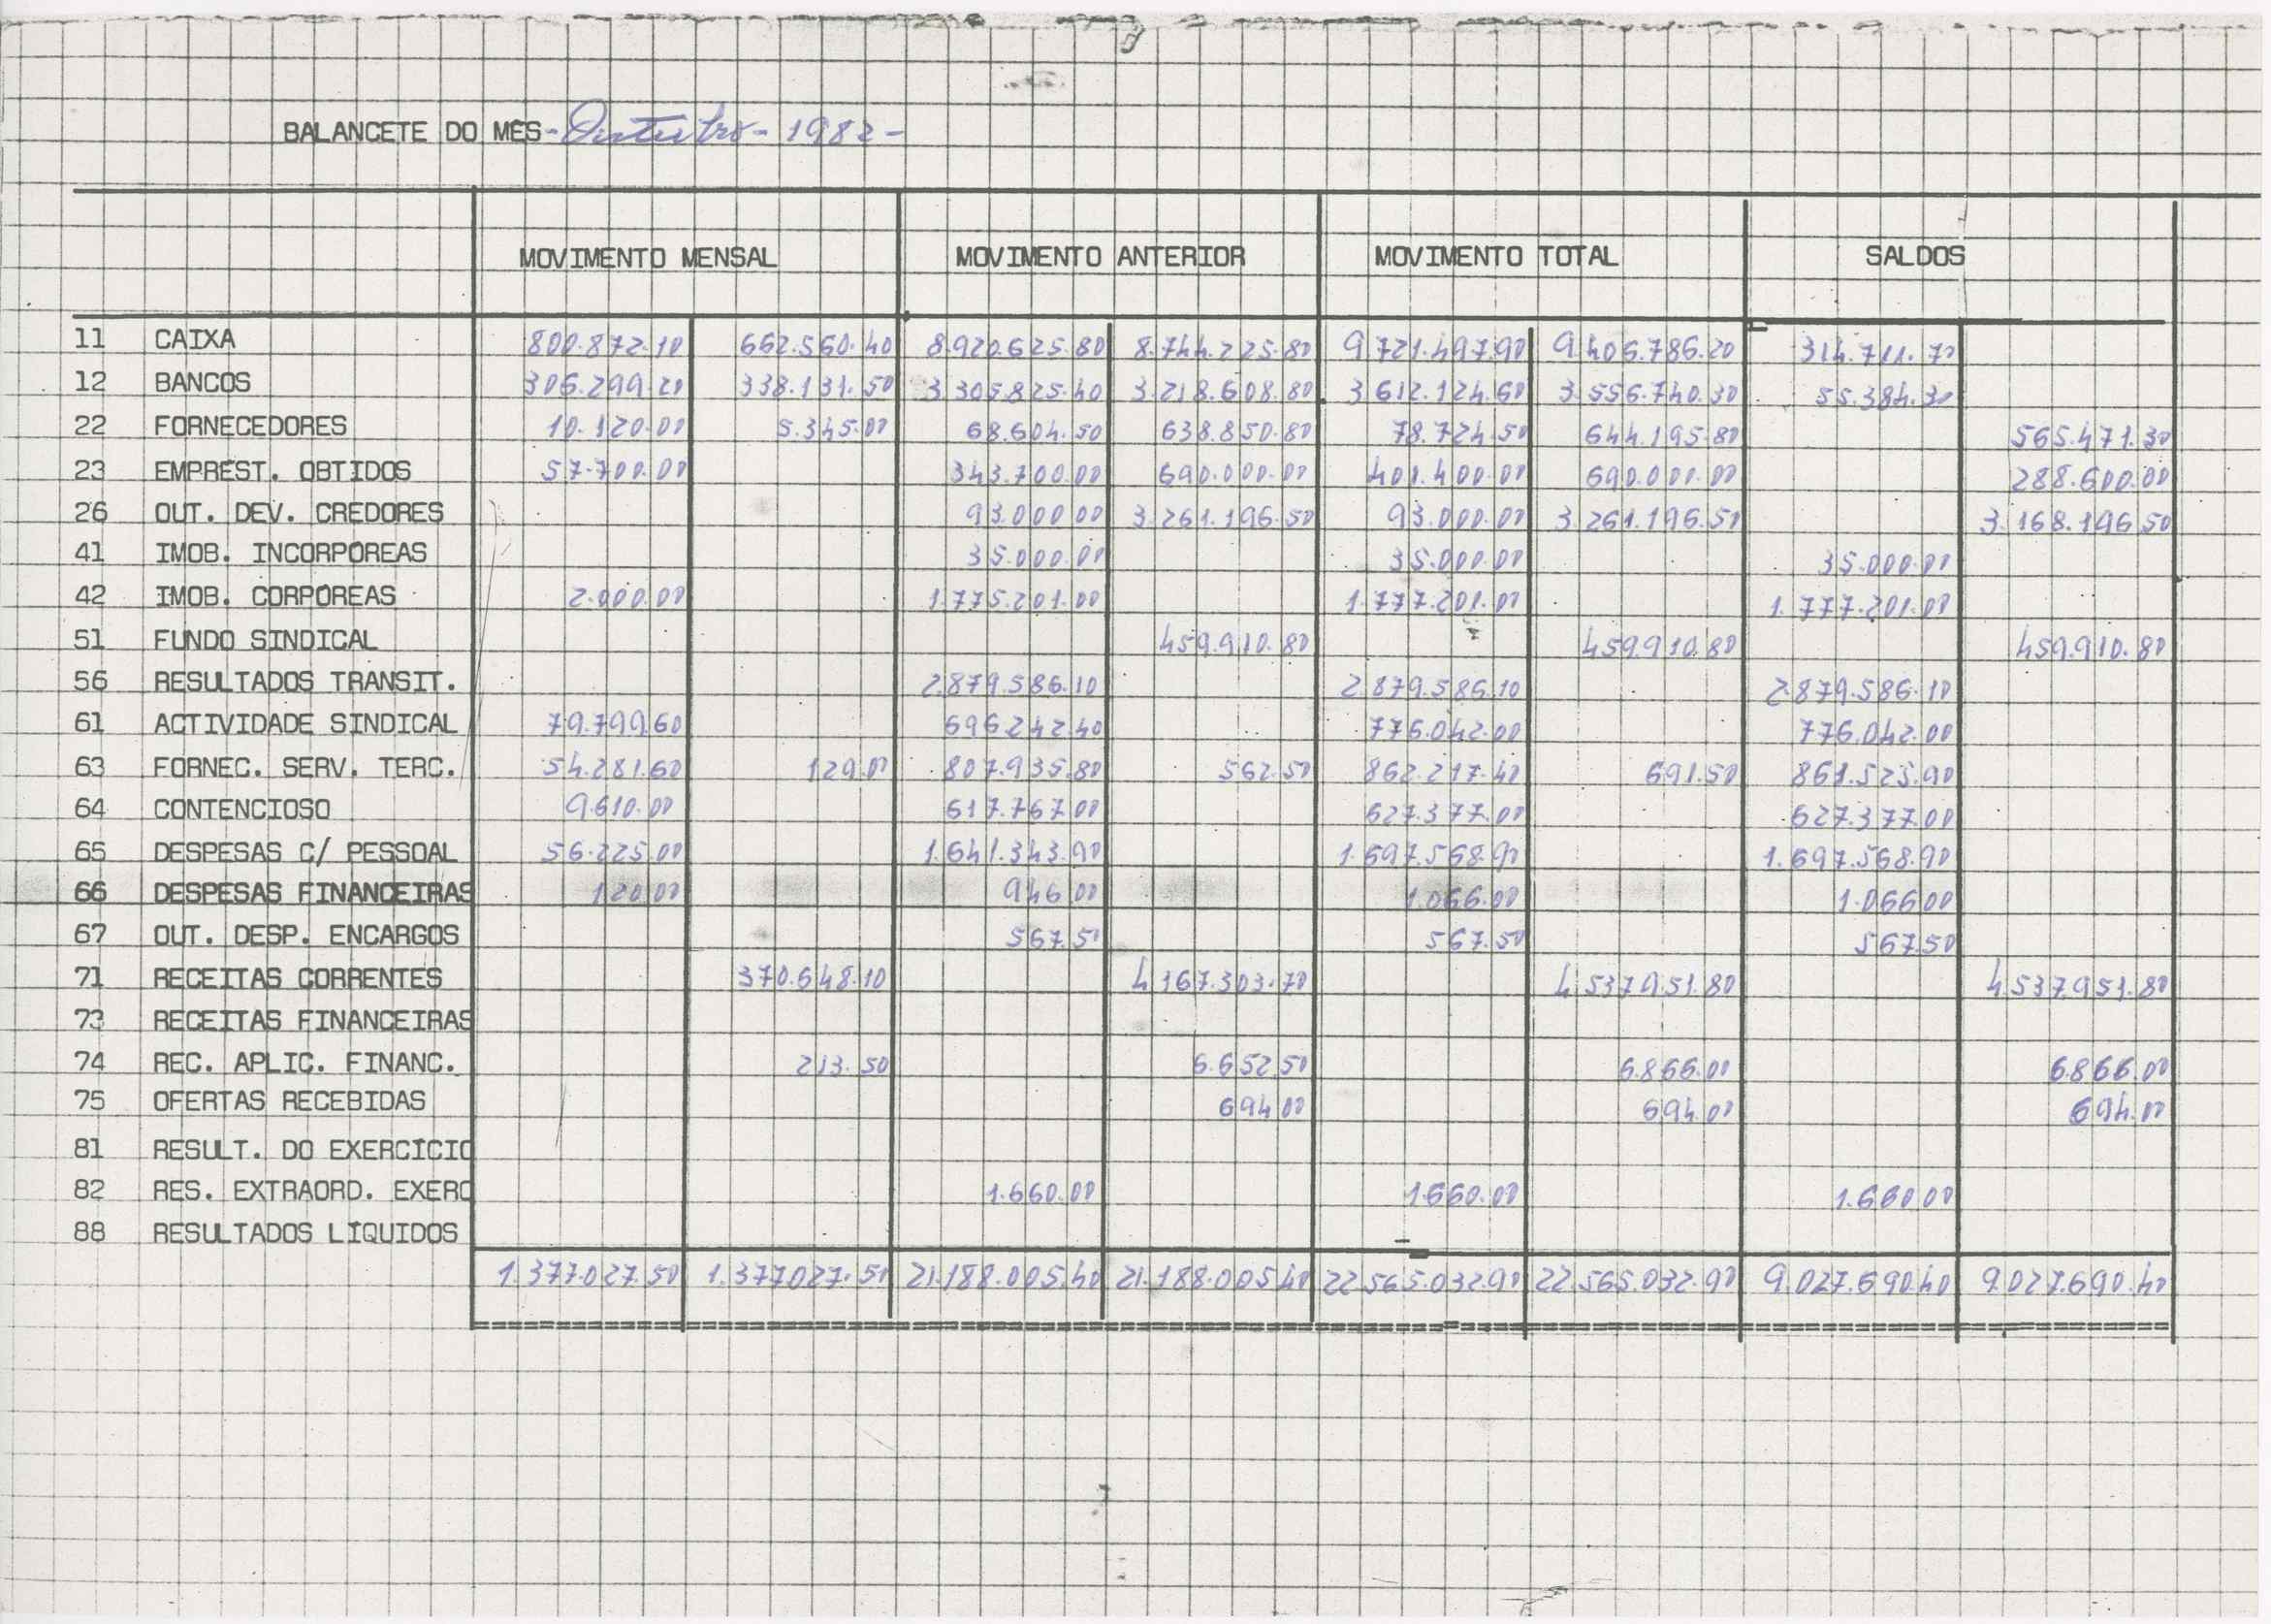 BALANCETE DO MÊS - Outubro - 1982 -
MOVIMENTO MENSAL MOVIMENTO ANTERIOR MOVIMENTO TOTAL SALDOS
11 CAIXA 800.872.10 662.560.40 8.920.625.80 8.744.225.80 9.721.497.90 9.406.786.20 314.711.70
12 BANCOS 306.299.20 338.131.50 3.305.825.40 3.218.608.80 3.612.124.60 3.556.740.30 55.384.30
22 FORNECEDORES 10.120.00 5.345.00 68.604.50 638.850.80 78.724.50 644.195.80 565.471.30
23 EMPREST. OBTIDOS 57.700.00 343.700.00 690.000.00 401.400.00 690.000.00 288.600.00
26 OUT. DEV. CREDORES 93.000.00 3.261.196.50 93.000.00 3.261.196.50 3.168.196.50
41 IMOB. INCORPÓREAS 35.000.00 35.000.00 35.000.00
42 IMOB. CORPÓREAS 2.000.00 1.775.201.00 1.777.201.00 1.777.201.00
51 FUNDO SINDICAL 459.910.80 459.910.80 459.910.80
56 RESULTADOS TRANSIT. 2.879.586.10 2.879.586.10 2.879.586.10
61 ACTIVIDADE SINDICAL 79.799.60 696.242.40 776.042.00 776.042.00
63 FORNEC. SERV. TERC. 54.281.60 129.00 807.935.80 562.50 862.217.40 691.50 861.525.90
64 CONTENCIOSO 9.610.00 617.767.00 627.377.00 627.377.00
65 DESPESAS C/ PESSOAL 56.225.00 1.641.343.90 1.697.568.90 1.697.568.90
66 DESPESAS FINANCEIRAS 120.00 946.00 1.066.00 1.066.00
67 OUT. DESP. ENCARGOS 567.50 567.50 567.50
71 RECEITAS CORRENTES 370.648.10 4.167.303.70 4.537.951.80 4.537.951.80
73 RECEITAS FINANCEIRAS
74 REC. APLIC. FINANC. 213.50 6.652.50 6.866.00 6.866.00
75 OFERTAS RECEBIDAS 694.00 694.00 694.00
81 RESULT. DO EXERCÍCIO
82 RES. EXTRAORD. EXERC 1.660.00 1.660.00 1.660.00
88 RESULTADOS LÍQUIDOS
1.377.027.50 1.377.027.50 21.188.005.40 21.188.005.40 22.565.032.90 22.565.032.90 9.027.690.40 9.027.690.40